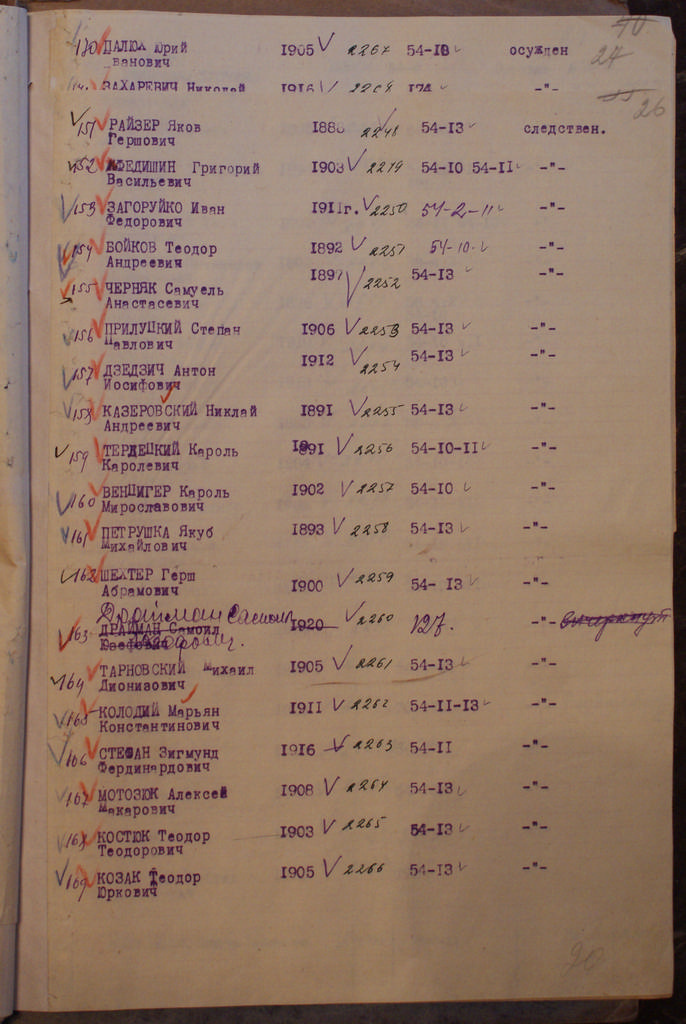 40
24
180 ПАЛЮХ Юрий 1905 V 2267 54-18 осужден
Іванович
ЗАХАРЕВИЧ Николай 1916 V 174 -"-
26
151 РАЙЗЕР Яков 1888 2248 54-13 следствен.
Гершович
152 ФЕДИШИН Григорий 1903 V 2249 54-10 54-11 -"-
Васильевич
153 ЗАГОРУЙКО Иван 1911г. V 2250 54-2,-11 -"-
Федорович
154 БОЙКОВ Теодор 1892 V 2251 54-10. -"-
Андреевич
155 ЧЕРНЯК Самуель 1897 V 2252 54-13 -"-
Анастасевич
156 ПРИЛУЦКИЙ Степан 1906 V 2253 54-13 -"-
Павлович
157 ДЗЕДЗИЧ Антон 1912 V 2254 54-13 -"-
Иосифович
158 КАЗЕРОВСКИЙ Никлай 1891 V 2255 54-13 -"-
Андреевич
159 ТЕРДЕЦКИЙ Кароль 1891 V 2256 54-10-11 -"-
Каролевич
160 ВЕНЦИГЕР Кароль 1902 V 2257 54-10 -"-
Мирославович
161 ПЕТРУШКА Якуб 1893 V 2258 54-13 -"-
Михайлович
162 ШЕХТЕР Герш 1900 V 2259 54- 13 -"-
Абрамович
Драйман Самоил
163 ДРАЙМАН Самоил 1920 V 2260 127. -"-
Юзефович
164 ТАРНОВСКИЙ Михаил 1905 V 2261 54-13 -"-
Дионизович
165 КОЛОДИЙ Марьян 1911 V 2262 54-11-13 -"-
Константинович
166 СТЕФАН Зигмунд 1916 V 2263 54-11 -"-
Фердинардович
167 МОТОЗЮК Алексей 1908 V 2264 54-13 -"-
Макарович
168 КОСТЮК Теодор 1903 V 2265 54-13 -"-
Теодорович
169 КОЗАК Теодор 1905 V 2266 54-13 -"-
Юркович
20